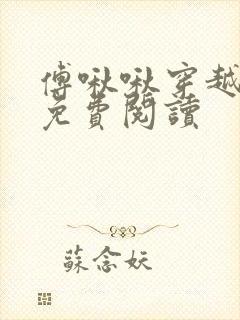 傅啾啾穿越
免費閱讀
蘇念妖